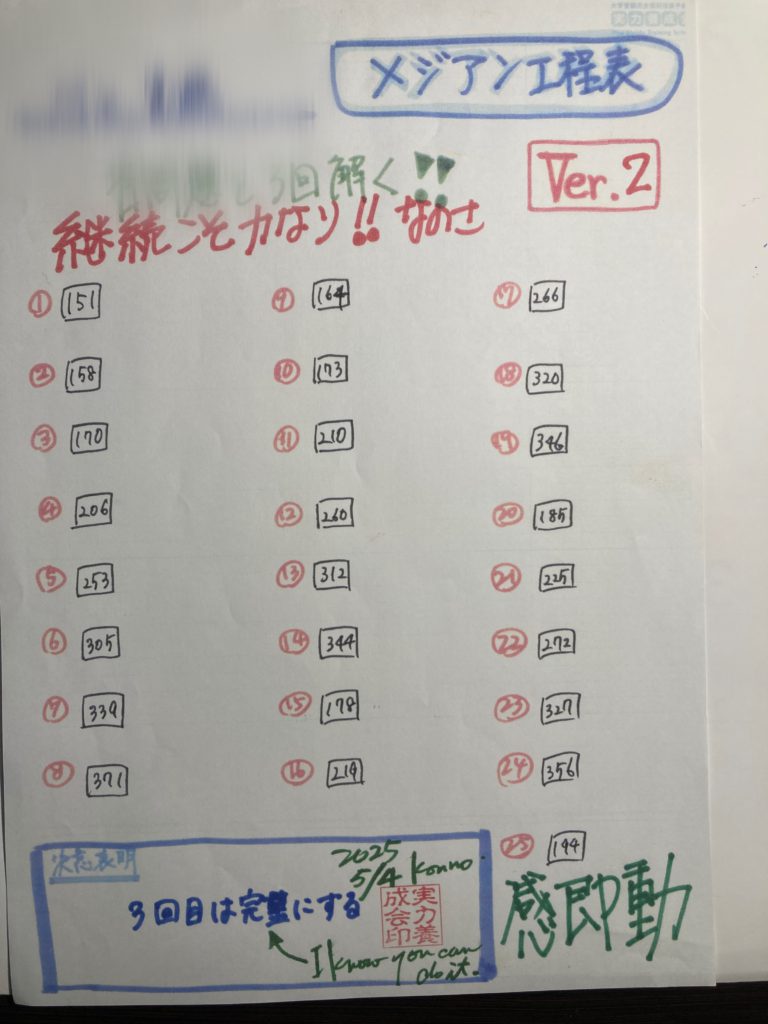 メジアン工程表
3回解く!!
Ver.2
継続こそ力なり!! なのさ
① 151
② 158
③ 170
④ 206
⑤ 253
⑥ 305
⑦ 339
⑧ 371
⑨ 164
⑩ 173
⑪ 210
⑫ 260
⑬ 312
⑭ 344
⑮ 178
⑯ 219
⑰ 266
⑱ 320
⑲ 346
⑳ 185
㉑ 225
㉒ 272
㉓ 327
㉔ 356
㉕ 194
決意表明
2025
5/4 Konno.
3回目は完璧にする
実力養成会印
I know you can
do it.
感即動